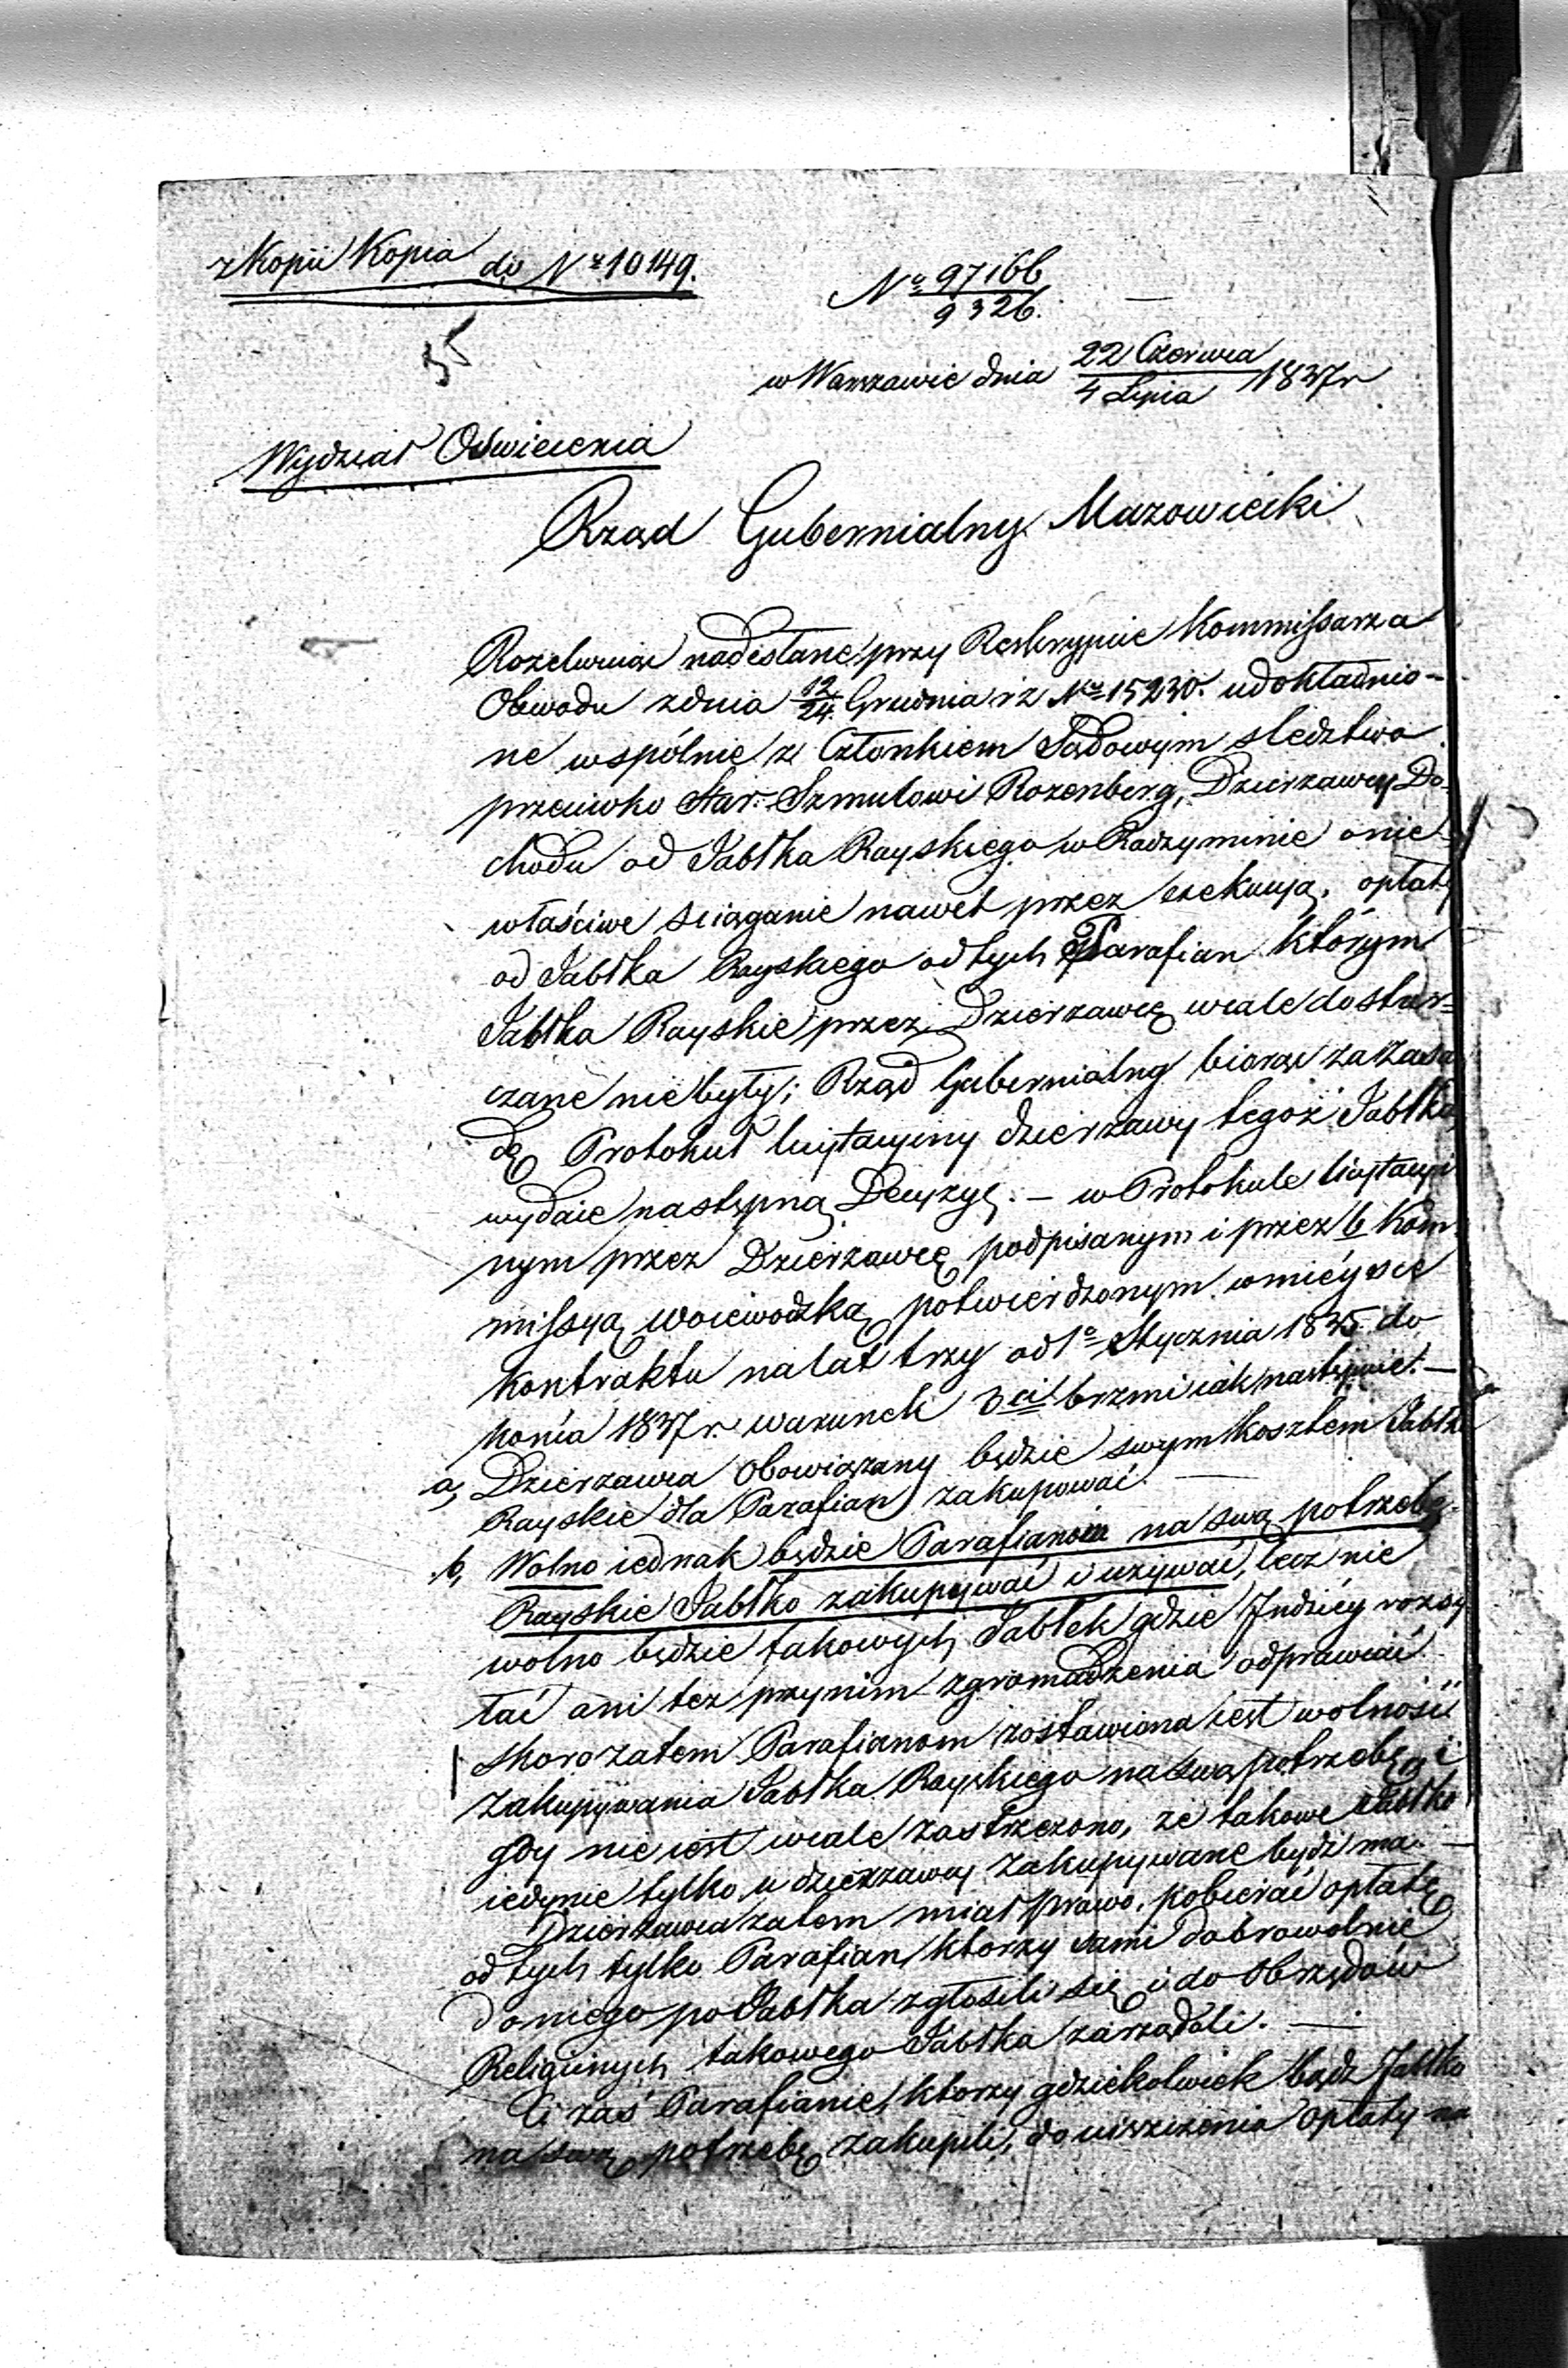 z Kopii Kopia do Nr 10149.
No 97166
9326.
35
w Warszawie dnia 22 Czerwca
4 Lipca 1837r
Wydział Oświecenia
Rząd Gubernialny Mazowiecki
nadesłane przy Reskrypcie Kommissarza
Obwodu z dnia 12/24 Grudnia r z No 15230. udokładnio-
ne wspólnie z Członkiem Sądowym sledztwo
przeciwko Star: Szmulowi Rozenberg, Dzierzawcy Do-
chodu od Jabłka Rayskiego w Radzyminie o nie-
właściwe sciąganie nawet przez exekucyą, opłaty
od Jabłka Rayskiego od tych Parafian którym
Jabłka Rayskie przez Dzierzawcę wcale dostar-
czane nie były; Rząd Gubernialny biorąc za zasa
dę Protokuł licytacyiny dzierzawy tegoż Jabłka
wydaie następną Decyzyę. – w Protokule licytacyi
nym przez Dzierzawcę podpisanym i przez b Kom
missyą Woiewodzką potwierdzonym w mieysce
Kontraktu na lat trzy od 1o Stycznia 1835. do
końca 1837 r. warunek 3ci brzmi iak następuie. –
a, Dzierzawca obowiązany będzie swym kosztem Jabłka
Rayskie dla Parafian zakupować. –
b, Wolno iednak będzie Parafianom na swą potrzebę
Rayskie Jabłko zakupywać i uzywać, lecz nie
wolno będzie takowych Jabłek gdzie Jndziéy rozsy
łać ani tez przynim zgromadzenia odprawiać
skoro zatem Parafianom zostawiona iest wolność
zakupywania Jabłka Rayskiego na swą potrzebę, i
gdy nie iest wcale zastrzezono, ze takowe Jabłko
iedynie tylko u dzierzawcy zakupywane bydź ma. –
Dzierzawca zatem miał prawo, pobierać opłatę
od tych tylko Parafian ktorzy sami dobrowolnie
do niego po Jabłka zgłosili się i do Obrzędów
Religiinych takowego Jabłka zarządali. –
Ci zaś Parafianie, ktorzy gdziekolwiek bądz Jabłko
na swą potrzebę zakupili, do uiszczenia opłaty na